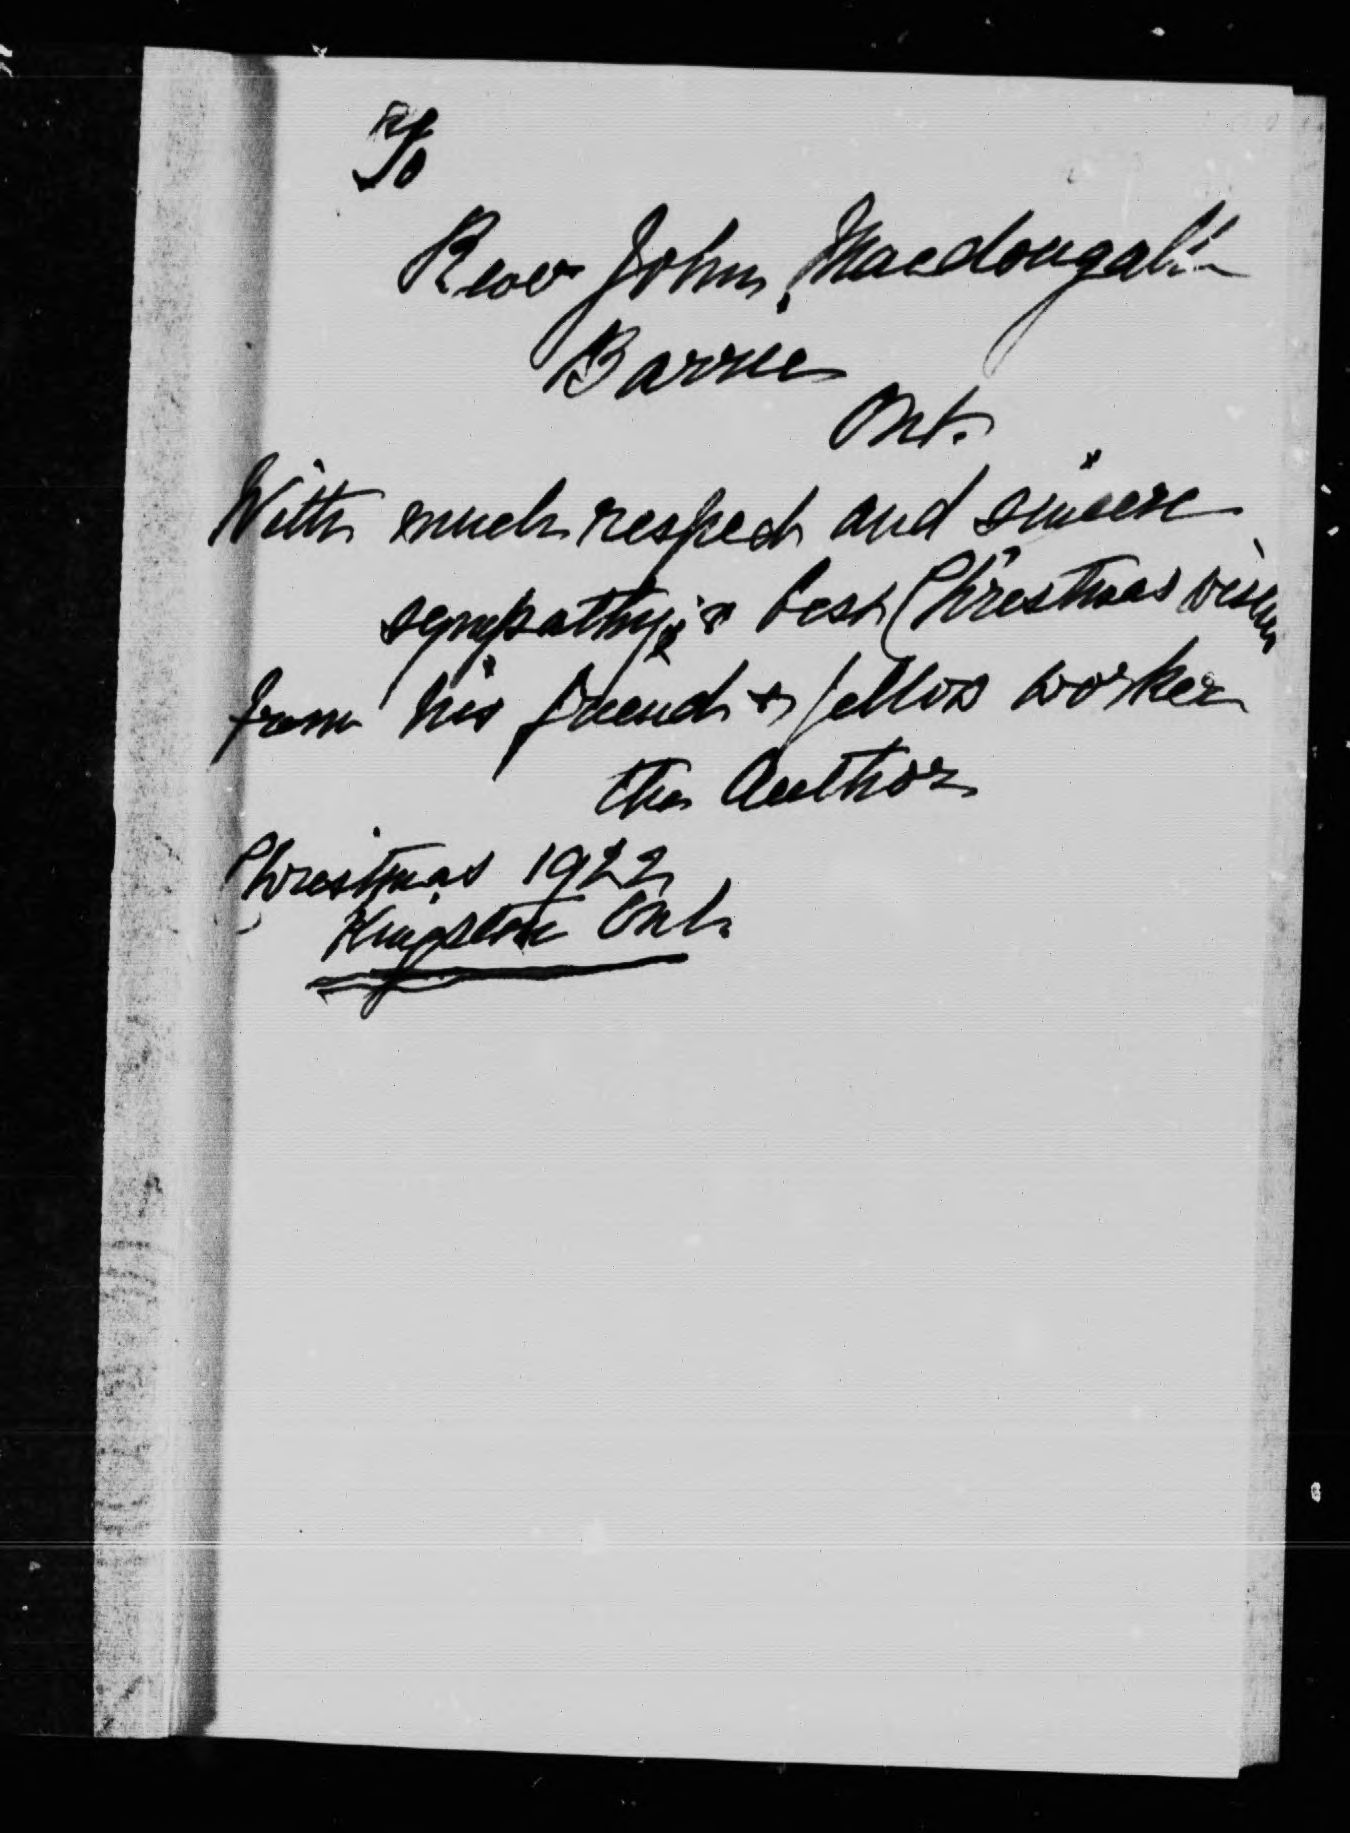 To
Rev John Macdougall
Barrie
Ont.
With much respect and sincere
sympathy & best Christmas wishes
from his friend & fellow worker
the Author
Christmas 1922
Kingston Ont.